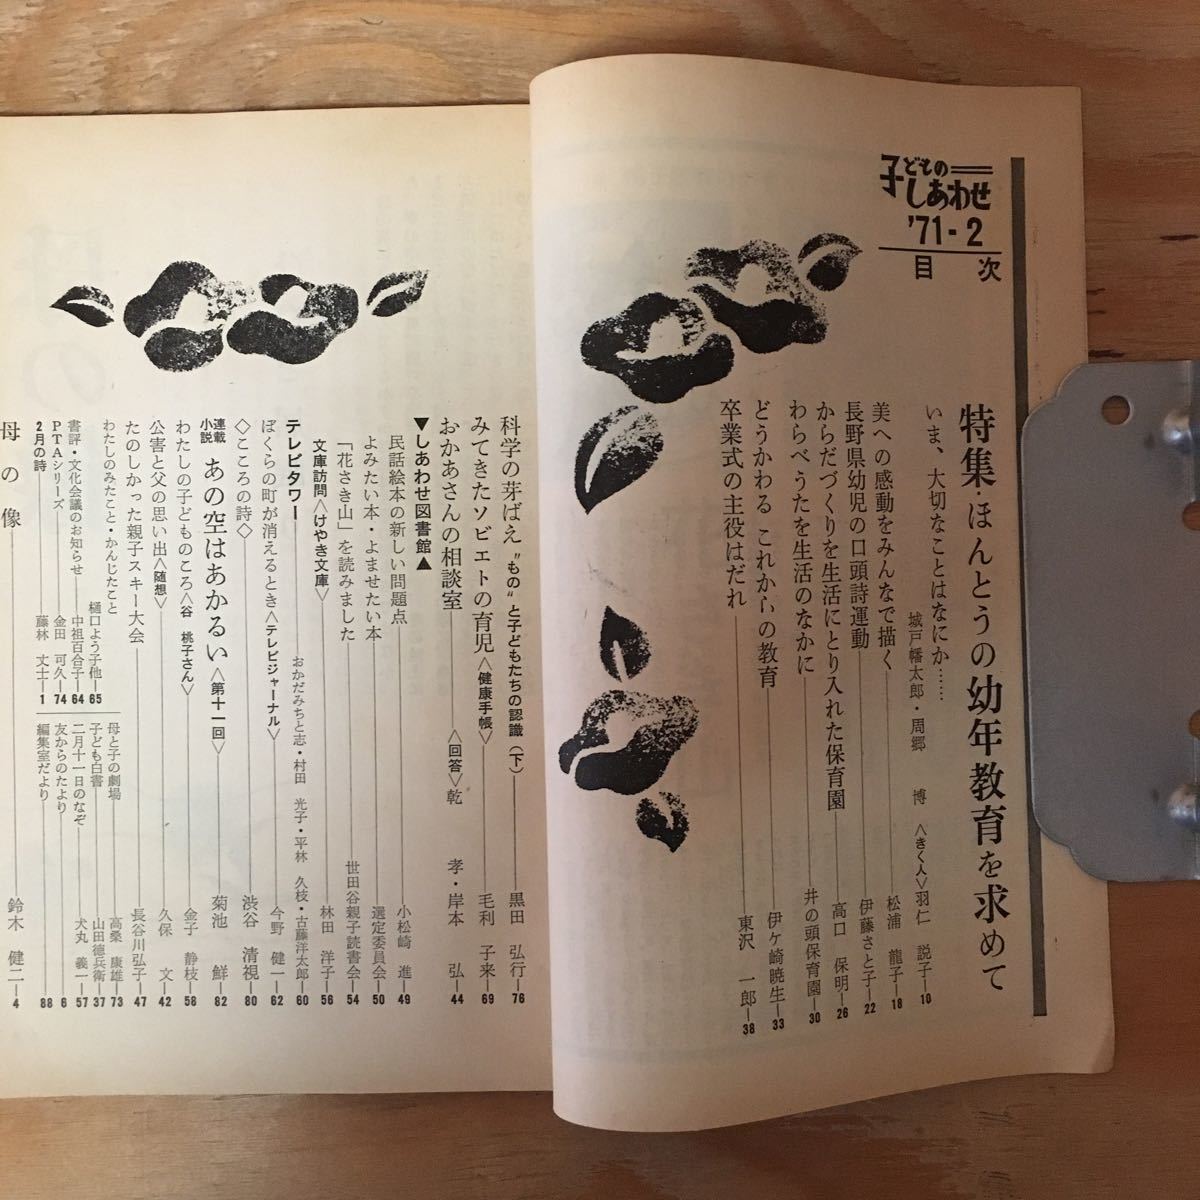 子どもの
しあわせ
'71-2
目次
特集・ほんとうの幼年教育を求めて
いま、大切なことはなにか……
城戸幡太郎・周郷 博 〈きく人〉羽仁 説子―10
美への感動をみんなで描く――松浦 龍子―18
長野県幼児の口頭詩運動――伊藤さと子―22
からだづくりを生活にとり入れた保育園――高口 保明―26
わらべうたを生活のなかに――井の頭保育園―30
どうかわる これからの教育――伊ケ崎暁生―33
卒業式の主役はだれ――東沢 一郎―38
科学の芽ばえ “もの”と子どもたちの認識(下)――黒田 弘行―76
みてきたソビエトの育児〈健康手帳〉――毛利 子来―69
おかあさんの相談室――〈回答〉乾 孝・岸本 弘―44
▼しあわせ図書館▲
民話絵本の新しい問題点――小松崎 進―49
よみたい本・よませたい本――選定委員会―50
「花さき山」を読みました――世田谷親子読書会―54
文庫訪問〈けやき文庫〉――林田 洋子―56
テレビタワー――おかだみちと志・村田 光子・平林 久枝・古藤洋太郎―60
ぼくらの町が消えるとき〈テレビジャーナル〉――今野 健一―62
◇こころの詩◇――渋谷 清視―80
連載小説 あの空はあかるい〈第十一回〉――菊池 鮮―82
わたしの子どものころ〈谷 桃子さん〉――金子 静枝―58
公害と父の思い出〈随想〉――久保 文―42
たのしかった親子スキー大会――長谷川弘子―47
わたしのみたこと・かんじたこと――樋口よう子他―65
書評・文化会議のお知らせ――中祖百合子―64
PTAシリーズ――金田 可久―74
2月の詩――藤林 丈士―1
母と子の劇場――高桑 康雄―73
子ども白書――山田徳兵衛―37
二月十一日のなぞ――犬丸 義一―57
友からのたより――6
編集室だより――88
母の像――鈴木 健二―4